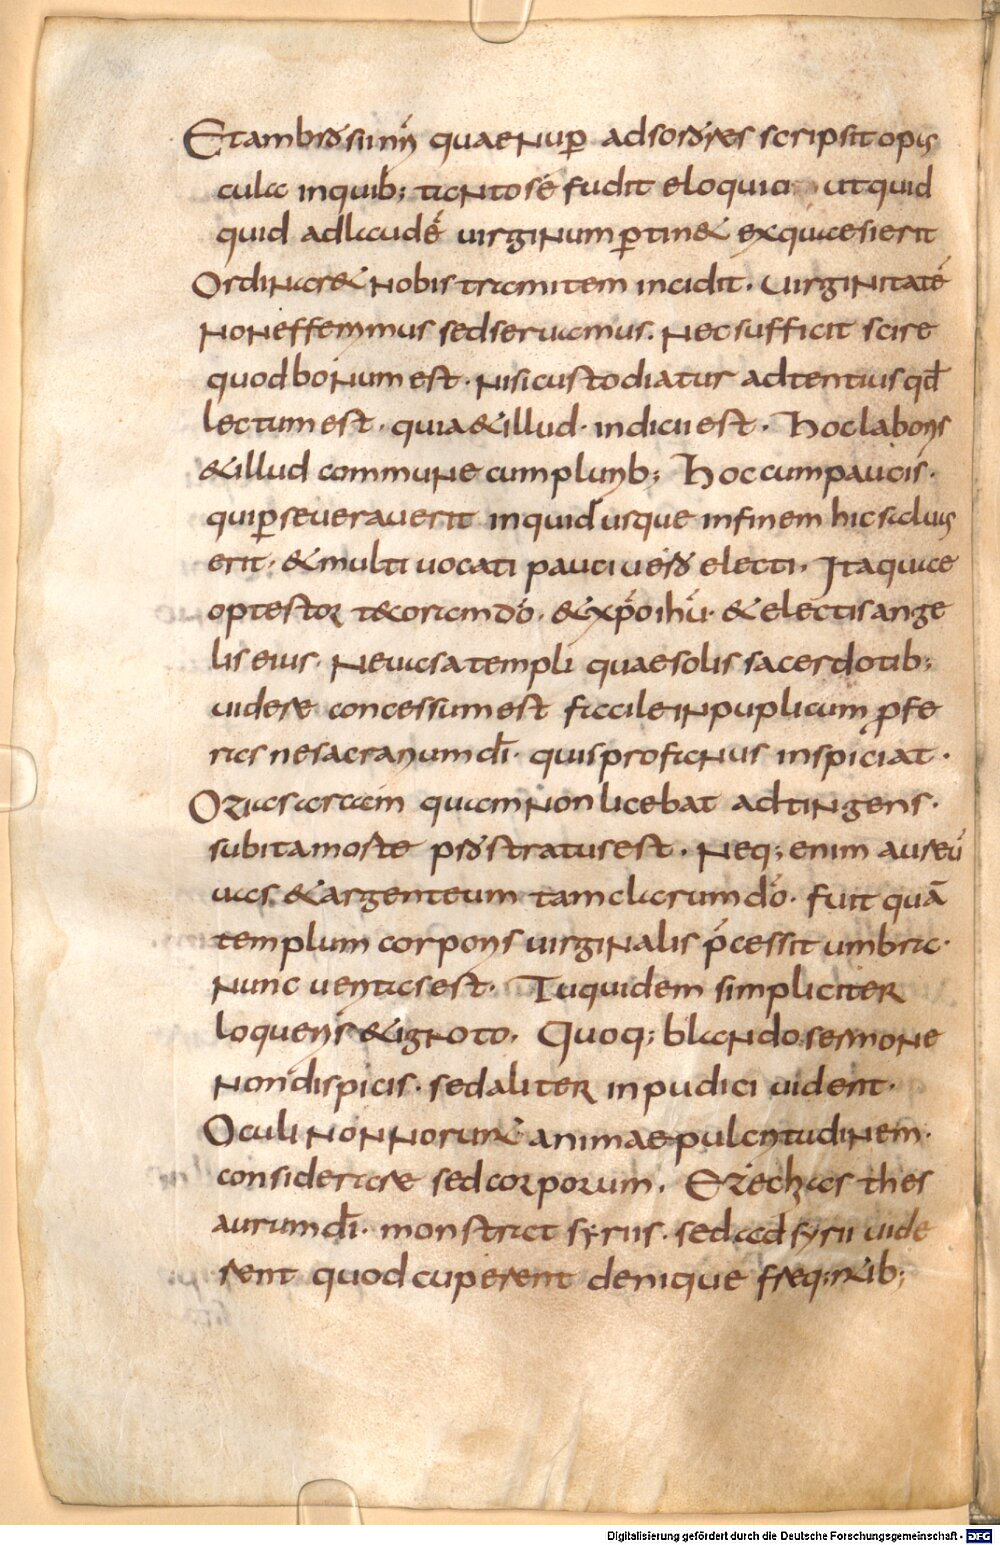 Et ambrosii nri quae nup ad sorores scripsit opus
cula in quib; tanto se fudit eloquia ut quid
quid ad laude uirginum ptin& exquaesierit
Ordinar& nobis tramitem incidit. Uirginitate
non efferimus sed seruamus. Nec sufficit scire
quod bonum est. nisi custodiatur adtentius qd
lectum est. quia & illud. indicii est. hoc laboris
& illud commune cum plurib; hoc cum paucis.
qui pseuerauerit inquid usque in finem hic saluus
erit. & multi uocati pauci uero electi. Itaquae
optestor te coram do. & xpo ihu. & electis ange
lis eius. Ne uasa templi quae solis sacerdotib;
uidere concessum est facile in puplicum profe
ras ne sacrarium di. quis profanus inspiciat.
Ozias arcam quam non licebat adtingens.
subita morte prostratus est. Neq; enim aureu
uas. & argenteum tam clarum do. fuit qua
templum corporis uirginalis pcessit umbra.
nunc ueritas est. Tu quidem simpliciter
loqueris & ignoto. Quoq; blando sermone
non dispicis. sed aliter inpudici uident.
Oculi non norunt animae pulcritudinem.
considerare sed corporum. Ezechias thes
aurum di. monstrat syriis. sed ad syrii uide
rent quod cuperent denique freq;ntib;
Digitalisierung gefördert durch die Deutsche Forschungsgemeinschaft - DFG